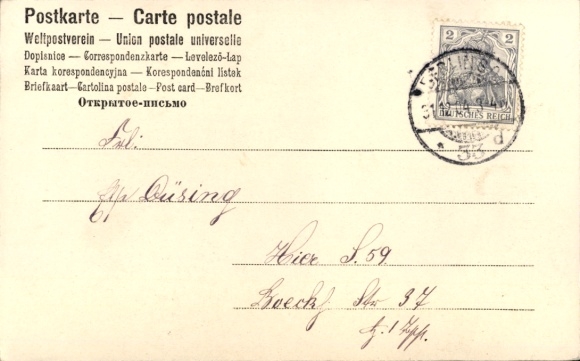 Postkarte — Carte postale
Weltpostverein — Union postale universelle
Dopisnice — Correspondenzkarte — Levelező-Lap
Karta korespondencyjna — Korespondenčni listek
Briefkaart—Cartolina postale—Post card—Brefkort
Открытое-письмо
2 2
DEUTSCHES REICH
BERLIN S.
53 d
Frl:
Düsing
Hier S. 59
Boeckh Str 37